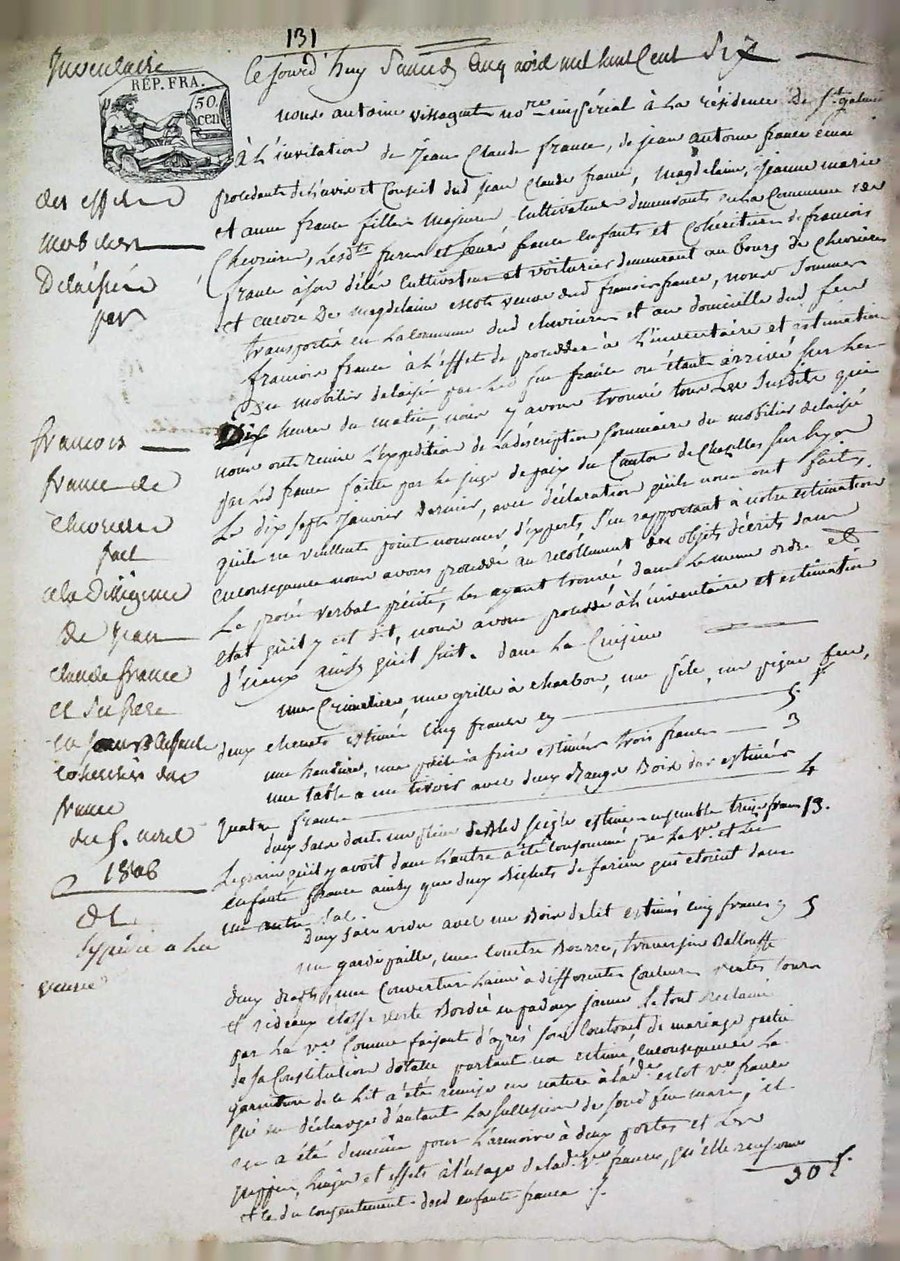 131
Inventaire
REP. FRA.
50
cen
des effets
mobiliers
Delaissés
par
françois
france de
chevrieres
fait
a la Diligence
de jean
claude france
et
cohéritiers dud
france
du 5. avril
1806
et
expédié a la
veuve
Ce jourd'huy Samedy cinq avril mil huit Cent Six
nous antoine vissaguet no.re impérial à la résidence de S.t galmier
à L'invitation de Jean Claude france, de jean antoine france
procédants de L'avis et Conseil dud jean Claude france, magdelaine, jeanne marie
et anne france filles majeures Cultivateurs demeurants en la Commune de
Chevrieres, Lesd.ts freres et france enfants et Cohéritiers de francois
france à son décès Cultivateur et voiturier demeurant au bourg de Chevrieres
et encore De magdelaine escot veuve dud francois france, nous Sommes
transporté en La Commune dud chevrieres et au domicille dud feu
francois france à L'effet de proceder à L'inventaire et estimation
Du mobilier delaissé par Led feu france ou étant arrivé Sur Les
Dix heures du matin, nous y avons trouvé tous Les Susdits qui
nous ont remis L'expédition de La déscription Sommaire du mobilier delaissé
par Led france faitte par Le juge de paix du Canton de Chazelles Sur Lyon
Le dix Sept Janvier dernier, avec déclaration qu'ils nous ont faitte
qu'ils ne veullent point nommer d'experts, S'en rapportant à notre estimation
en consequence nous avons procédé au récollement des objets décrits dans
Le procès verbal précité, Les ayant trouvé dans Le meme ordre et
etat qu'il y est dit, nous avons procédé à L'inventaire et estimation
d'iceux ainsy qu'il suit. dans La Cuisine
une Crémaliere, une grille à charbon, une pêle, un pique feu,
deux chenets estimés Cinq francs cy 5 f
une poële à frire estimés trois francs 3
une table a un tiroir avec deux Bancs Bois dur estimés
quatre francs 4
deux Sacs dont un plein de Bled Seigle estimés ensemble treize francs 13.
Le grain qu'il y avoit dans L'autre a été Consommé par La v.ve et Les
enfants france ainsy que deux Bichets de farine qui etoient dans
un autre Sac.
deux Sacs vides avec un Bois de lit estimés Cinq francs cy 5
une garde paille, une Coëtre Bourre, traversin Ballouffe
deux draps, une Couverture Laine à differentes Couleurs
et rideaux étoffe verte Bordée en padoux jaune le tout réclamé
par La v.ve Comme faisant d'après Son Contrat de mariage partie
de Sa Constitution dotale partant non estimé en conséquence La
garniture de ce Lit a été remise en nature à Lad.e escot v.ve france
qui en décharge d'autant La Succession de Sond feu mari, il
en a été de même pour L'armoire à deux portes et Les
nippes, Linges et effets à L'usage de lad.e v.ve france, qu'elle renferme
et ce du consentement desd enfants france
30 f.